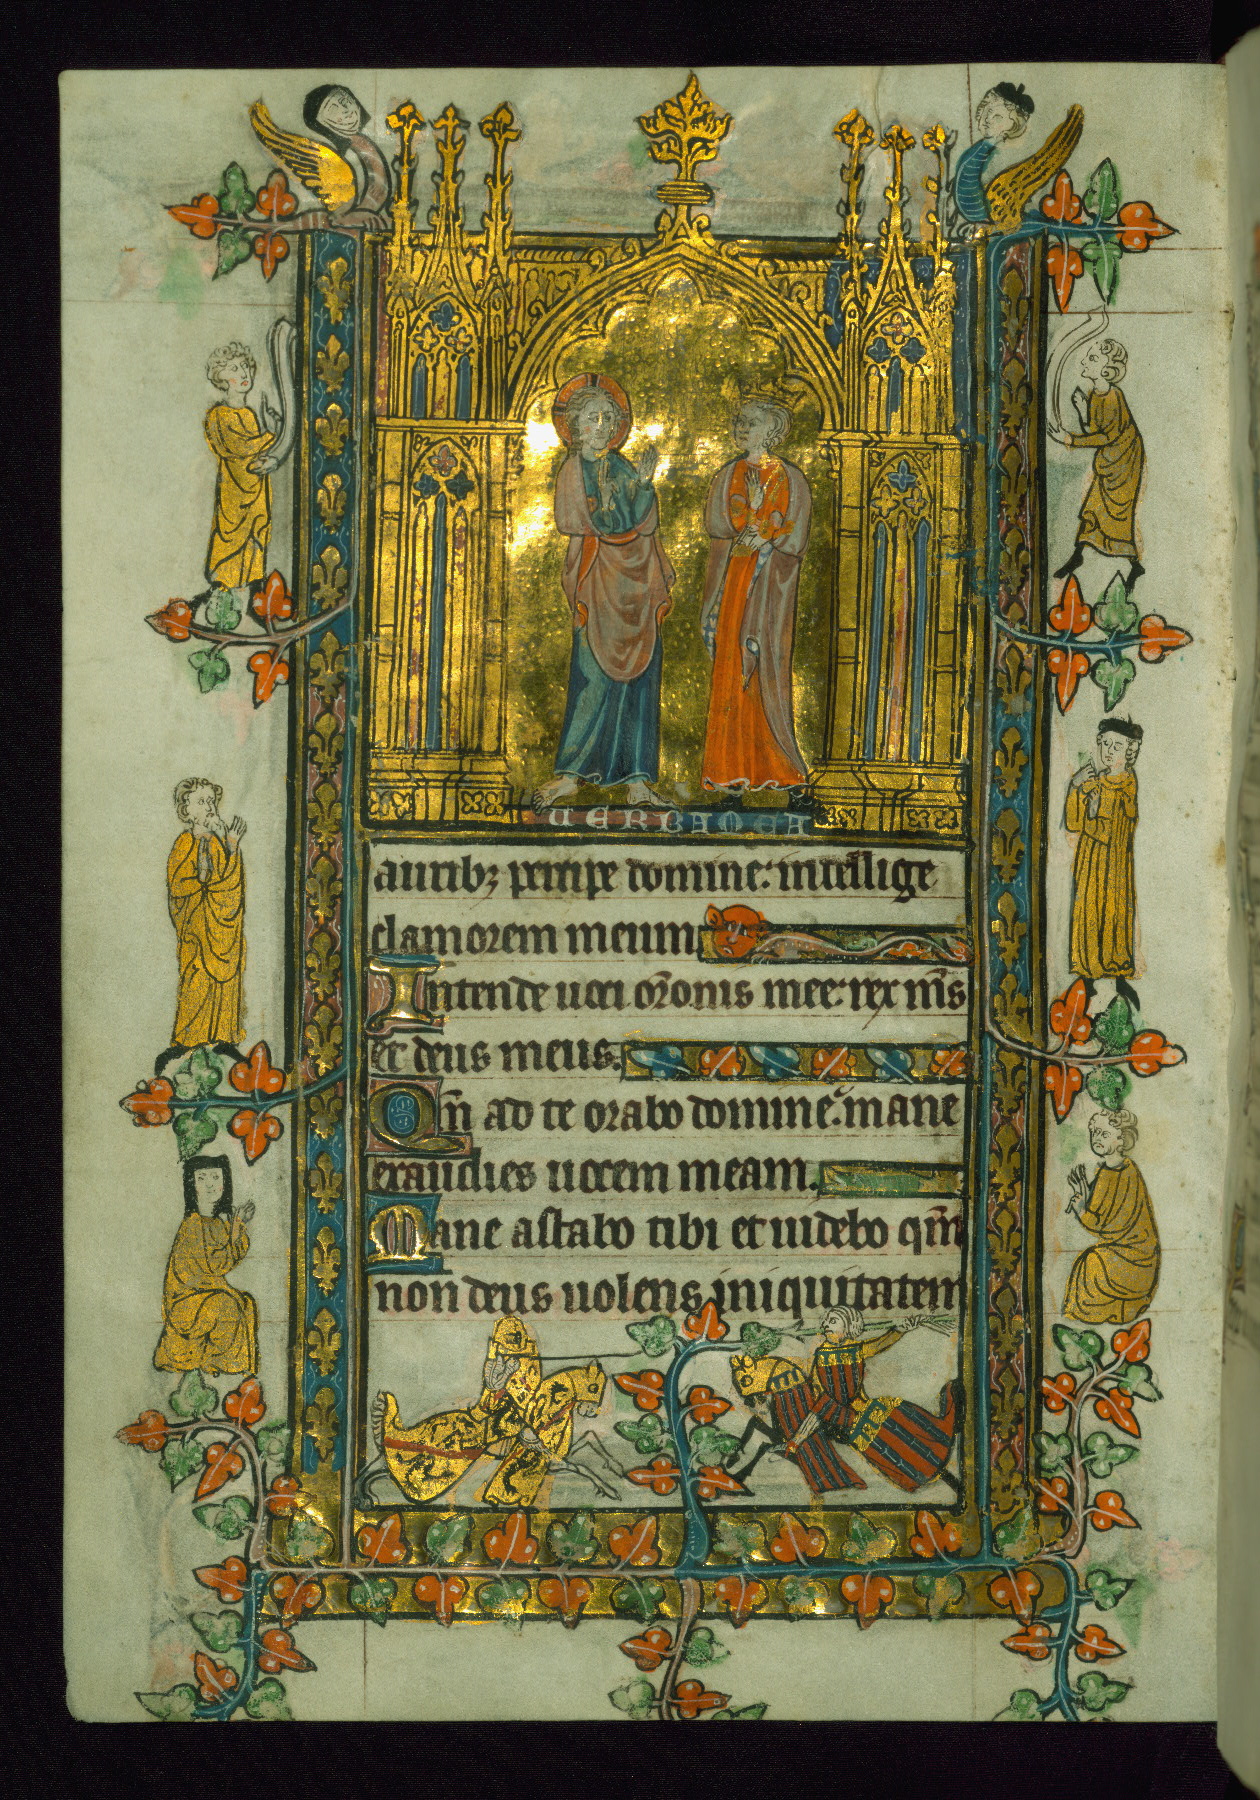 UERBA MEA
auribꝫ percipe domine: intellige
clamorem meum.
Intende uoci or̃onis mee: rex m̃s
et deus meus.
Qm̃ ad te orabo domine: mane
exaudies uocem meam.
Mane astabo tibi et uidebo qm̃
non deus uolens iniquitatem